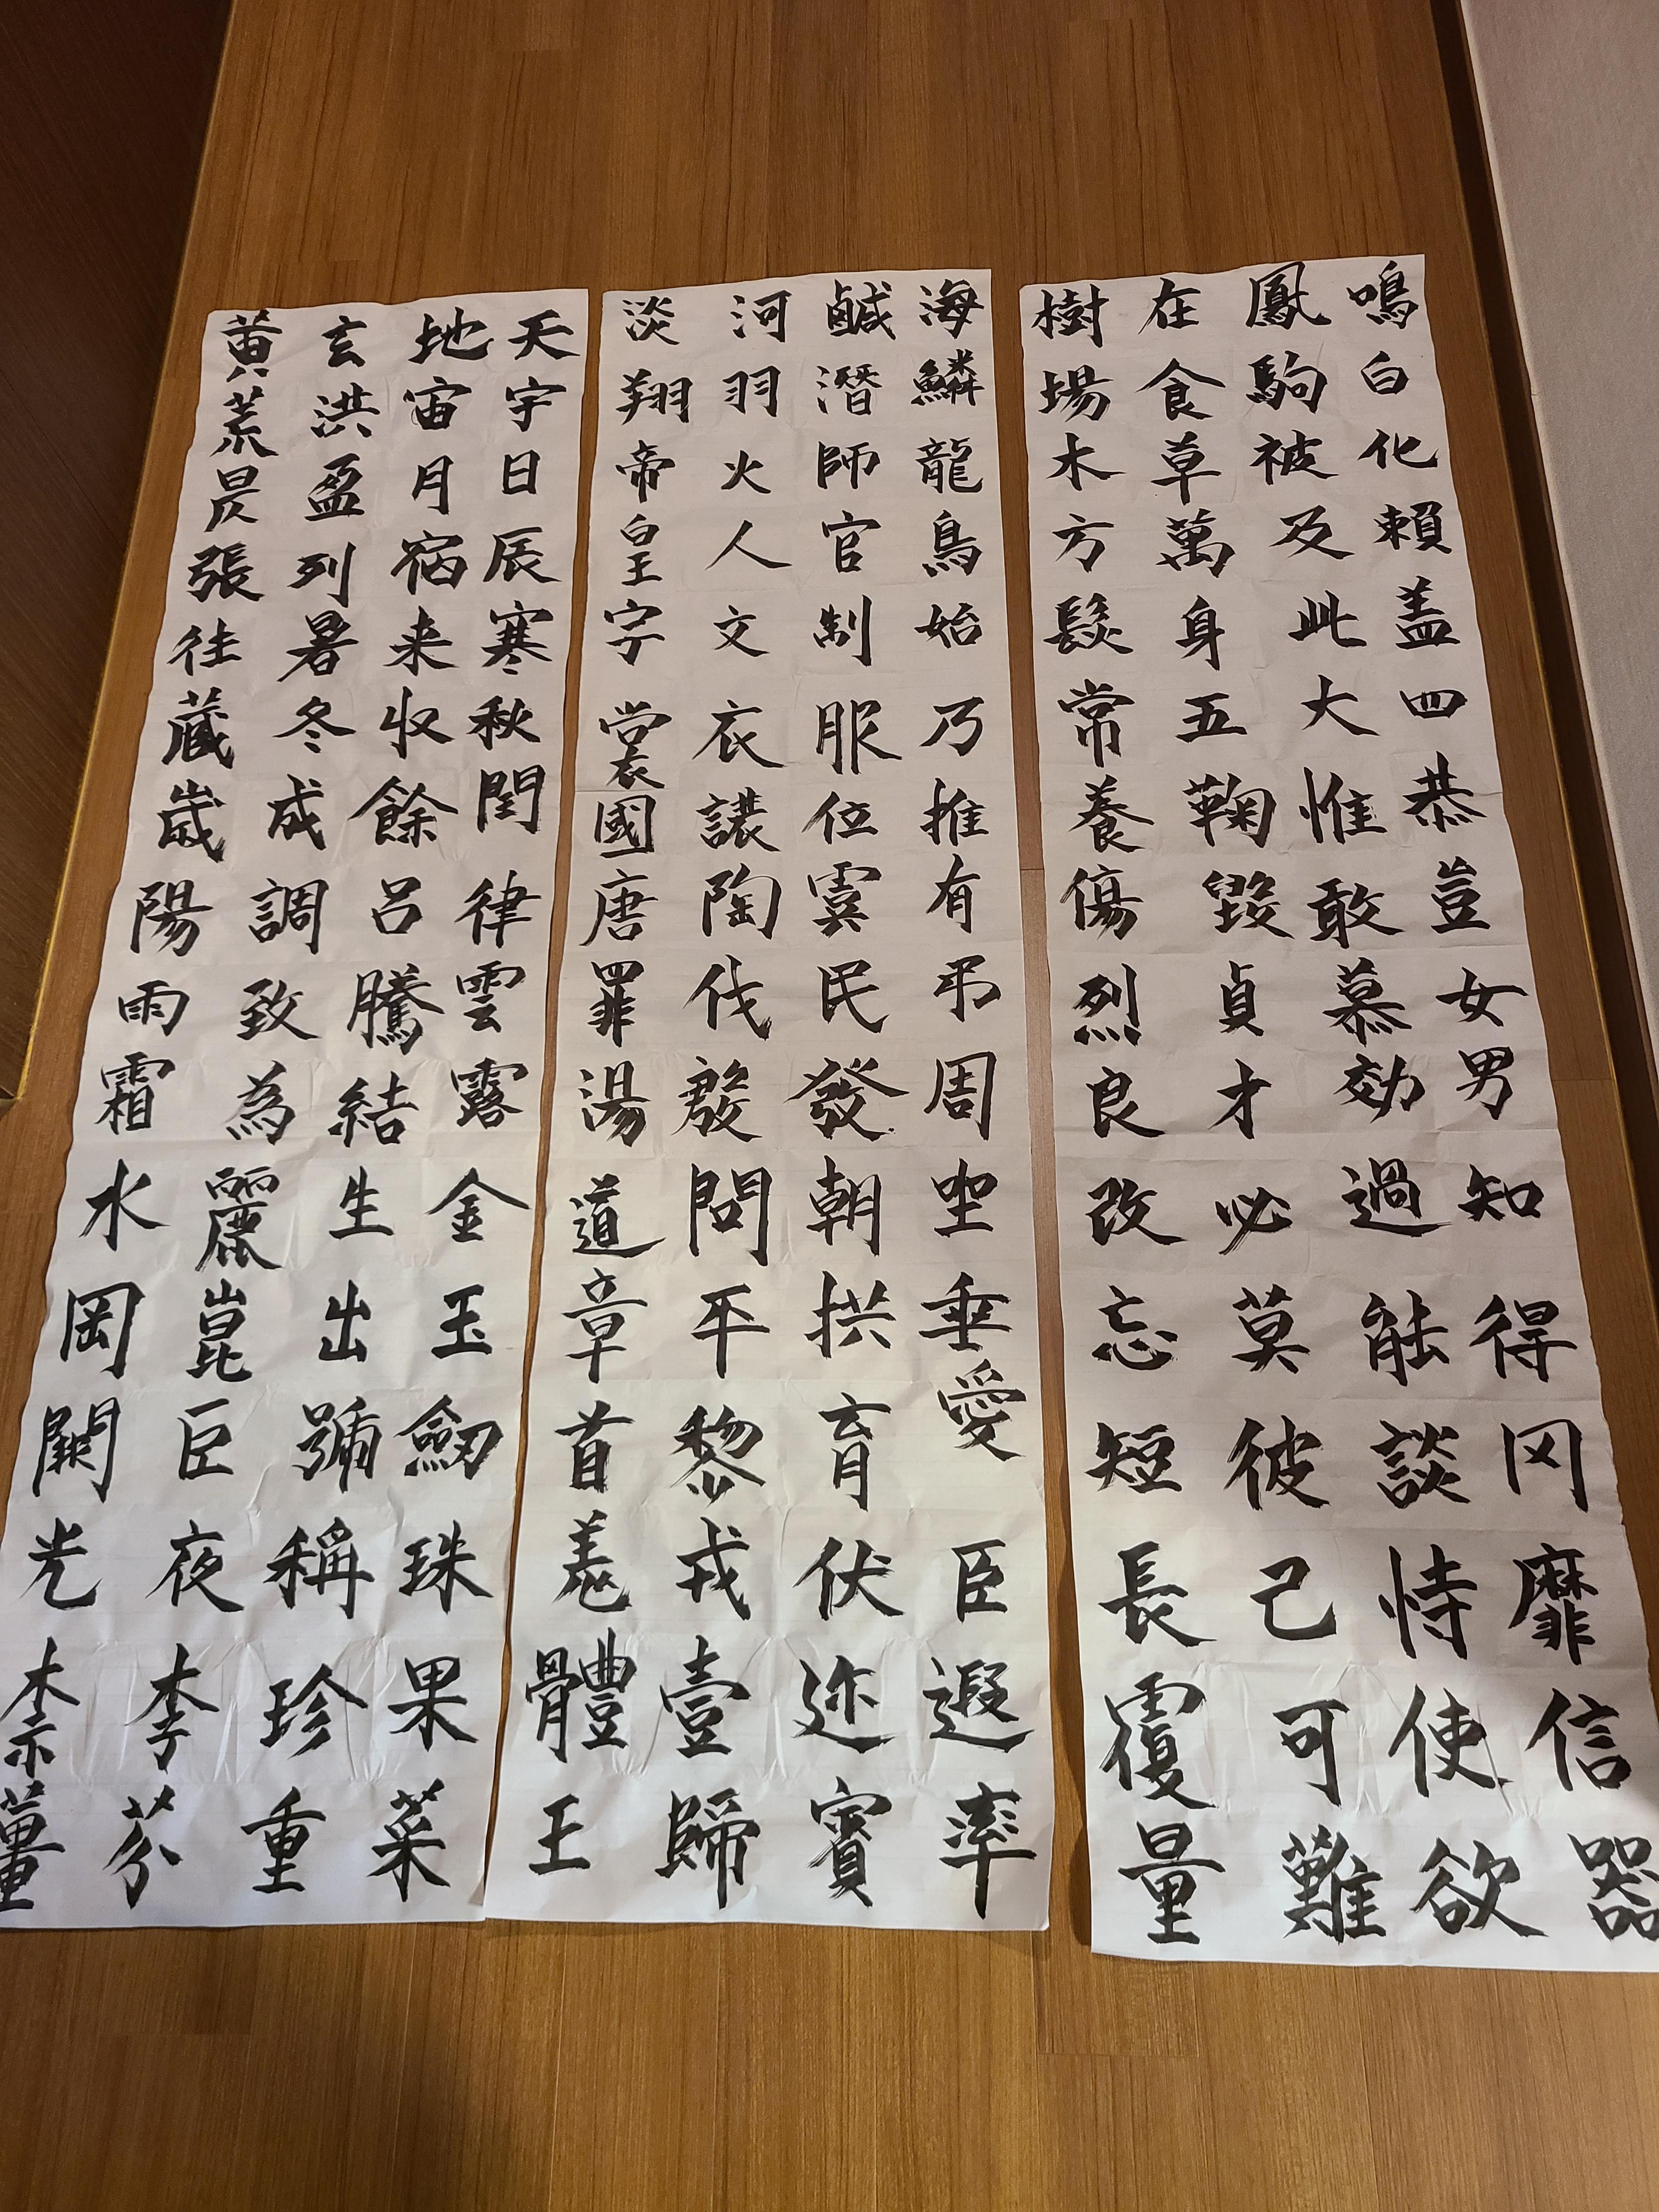 天地玄黃
宇宙洪荒
日月盈昃
辰宿列張
寒来暑往
秋収冬蔵
閏餘成歲
律呂調陽
雲騰致雨
露結為霜
金生麗水
玉出崑岡
劒號臣闕
珠稱夜光
果珍李柰
菜重芥薑
海鹹河淡
鱗潛羽翔
龍師火帝
鳥官人皇
始制文字
乃服衣裳
推位讓國
有虞陶唐
弔民伐罪
周發殷湯
坐朝問道
垂拱平章
愛育黎首
臣伏戎羌
遐迩壹體
率賓歸王
鳴鳳在樹
白駒食場
化被草木
賴及萬方
盖此身髮
四大五常
恭惟鞠養
豈敢毀傷
女慕貞烈
男効才良
知過必改
得能莫忘
罔談彼短
靡恃己長
信使可覆
器欲難量